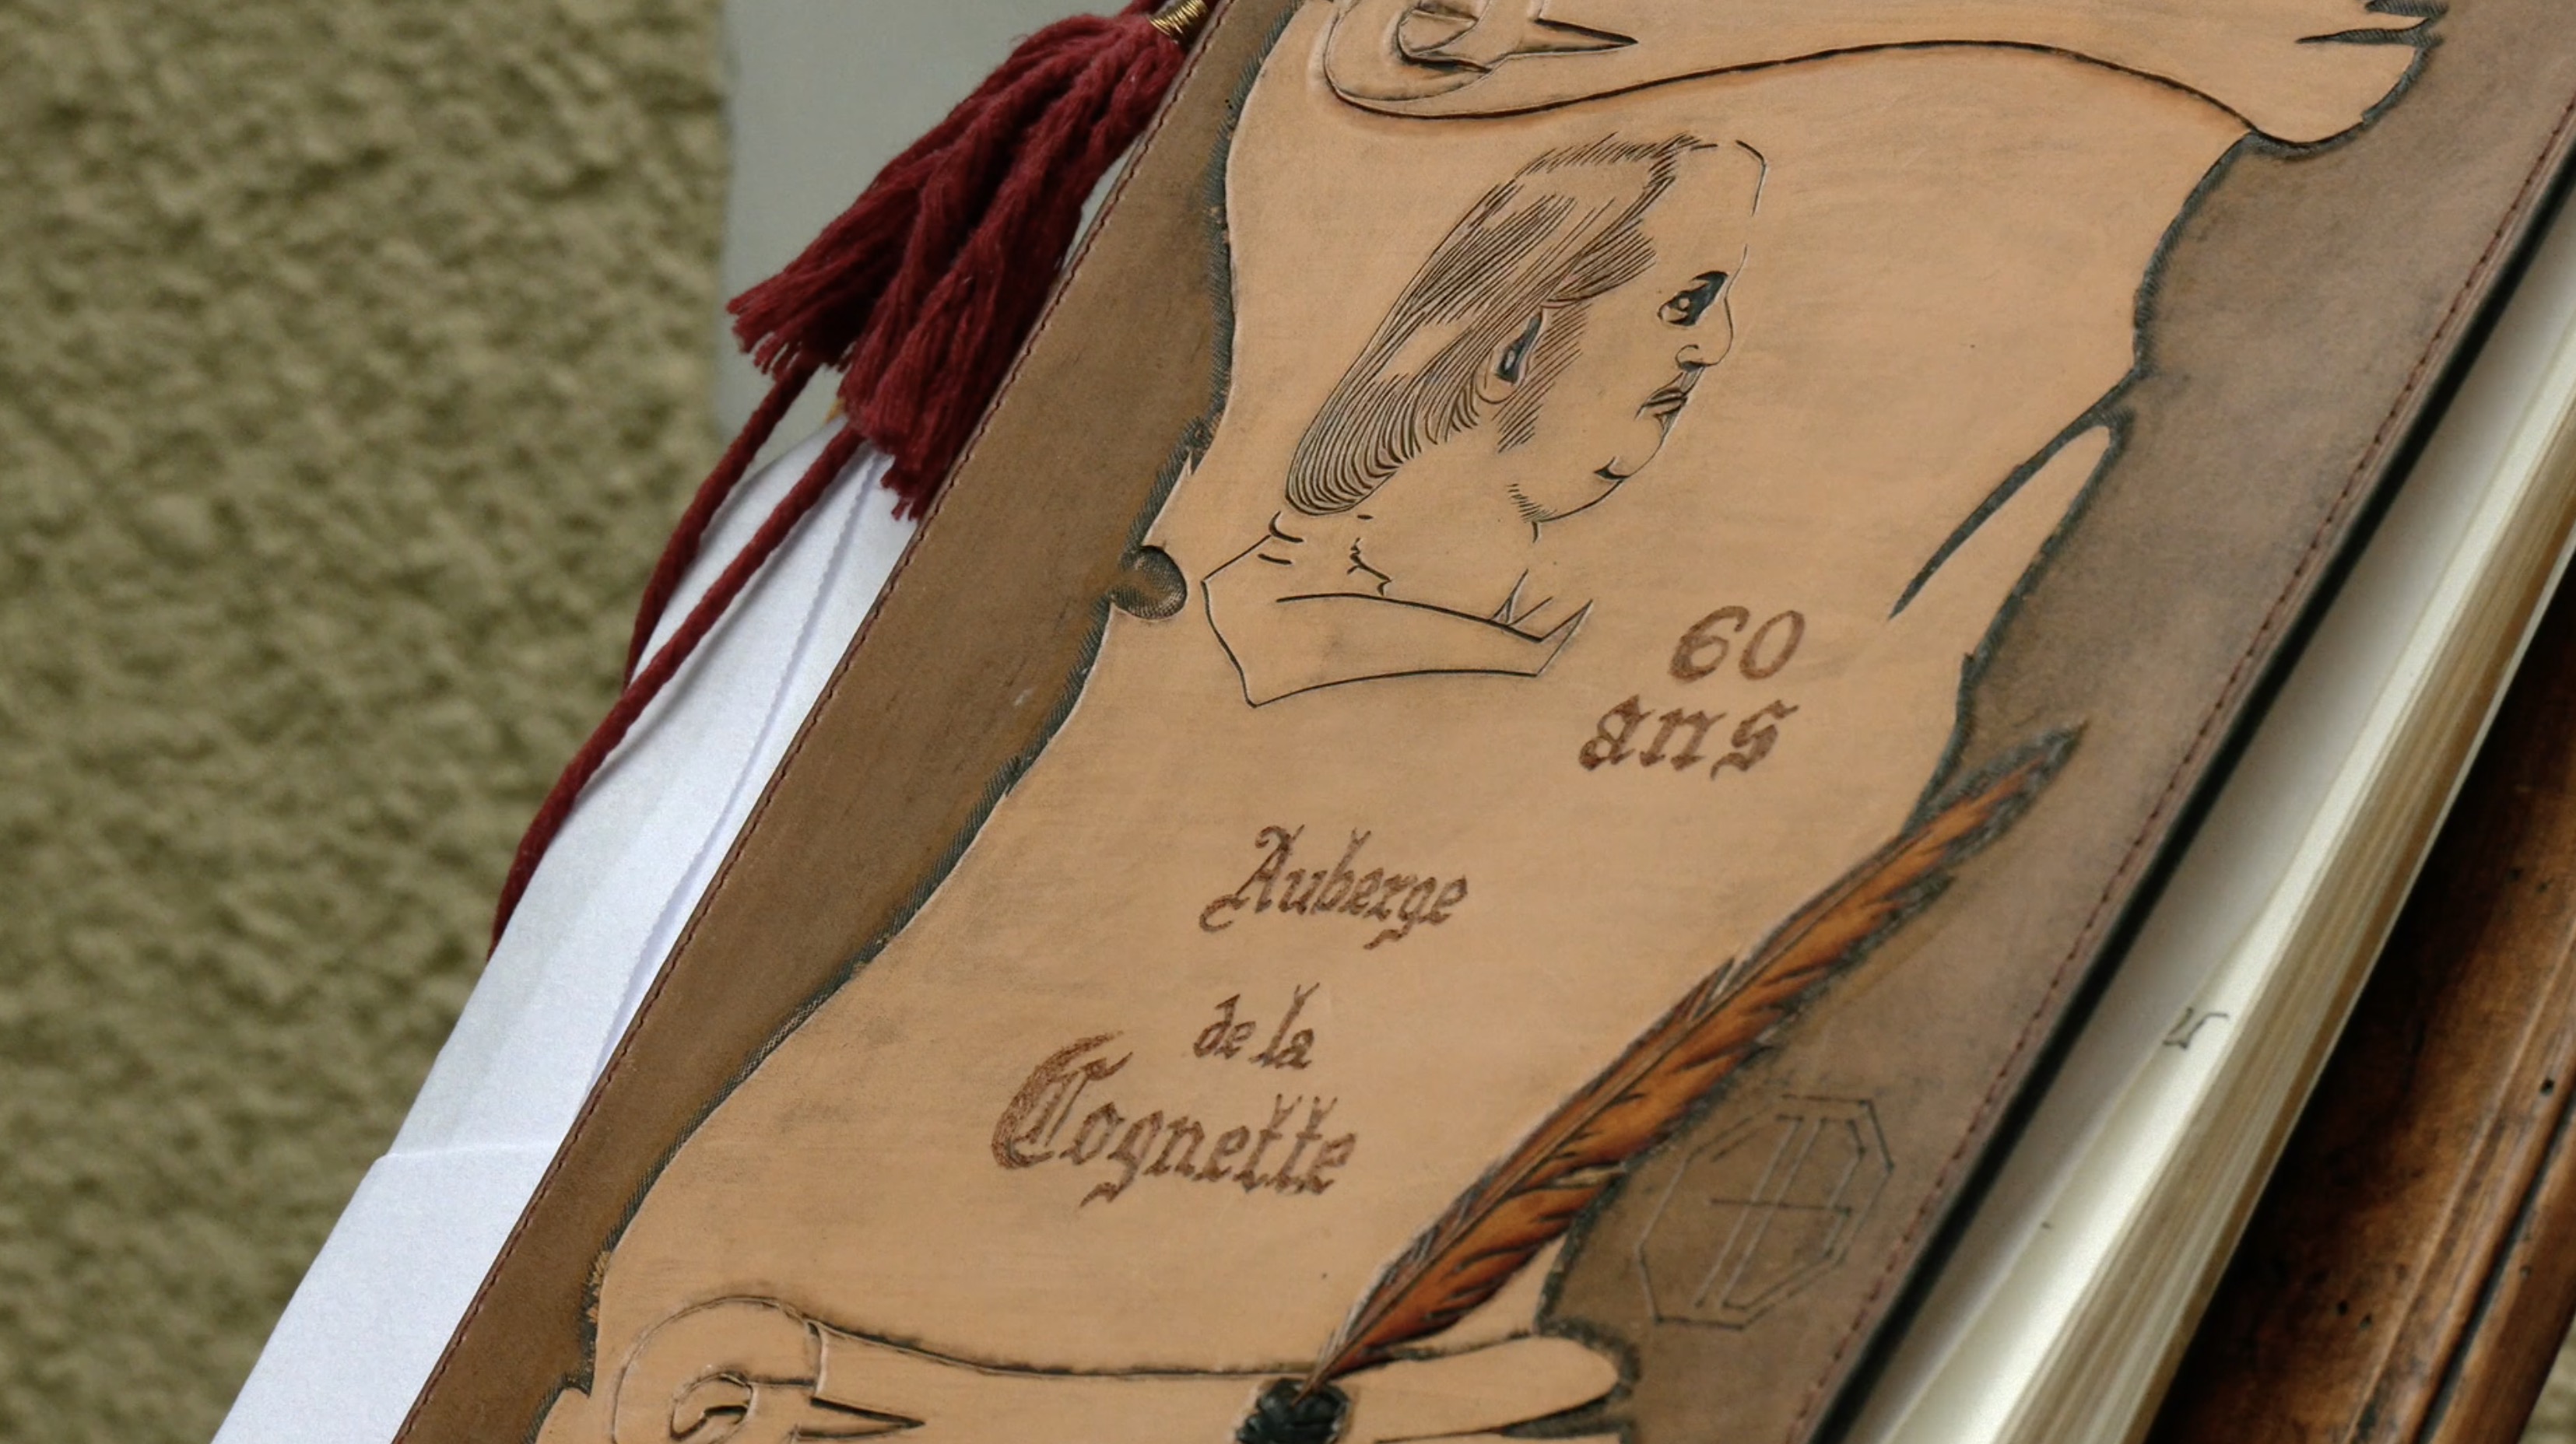 60
ans
Auberge
de la
Cognette